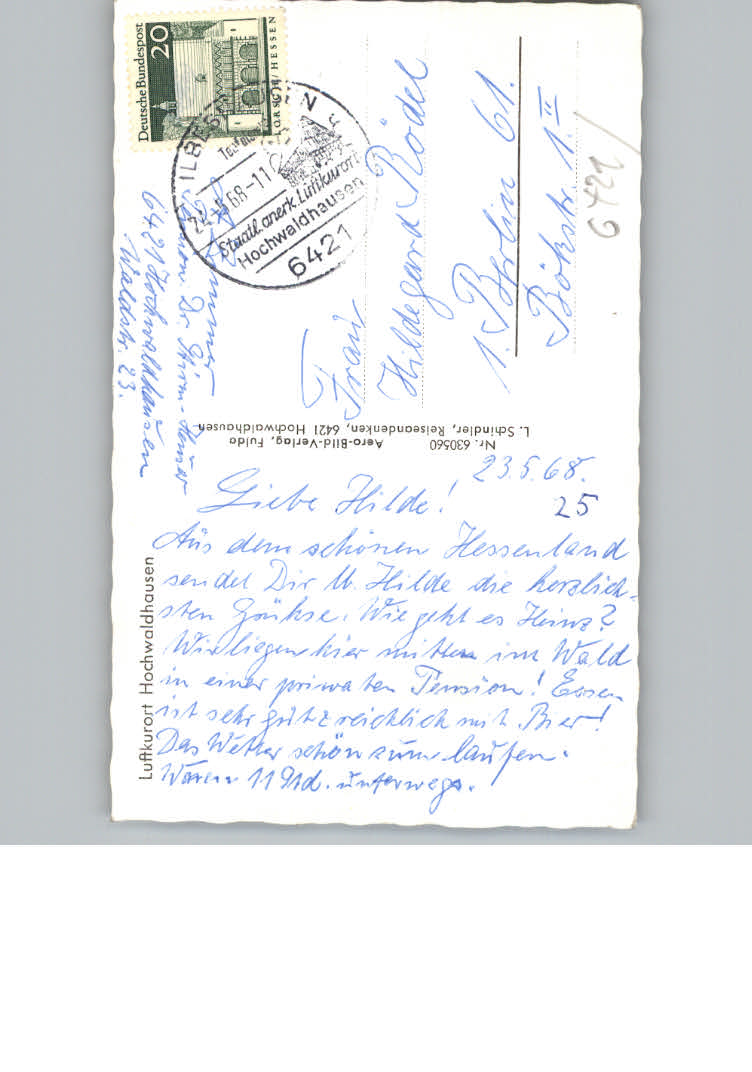 Deutsche Bundespost
20
LORSCH/HESSEN
24.5.68-11
Staatl. anerk. Luftkurort
Hochwaldhausen
6421
6421 Hochwaldhausen
Waldstr. 23.
Frau
Hildegard Rödel
1. Berlin 61.
Böckstr. 1.II
6421/
Nr. 630560 Aero-Bild-Verlag, Fulda
L. Schindler, Reiseandenken, 6421 Hochwaldhausen
Luftkurort Hochwaldhausen
23.5.68.
25
Liebe Hilde!
Aus dem schönen Hessenland
sendet Dir u. Hilde die herzlich-
sten Grühse. Wie geht es Heinz?
Wir liegen hier mitten im Wald
in einer privaten Pension! Essen
ist sehr gut z reichlich mit. Bier!
Das Wetter schön zum laufen.
Waren 11 Std. unterwegs.